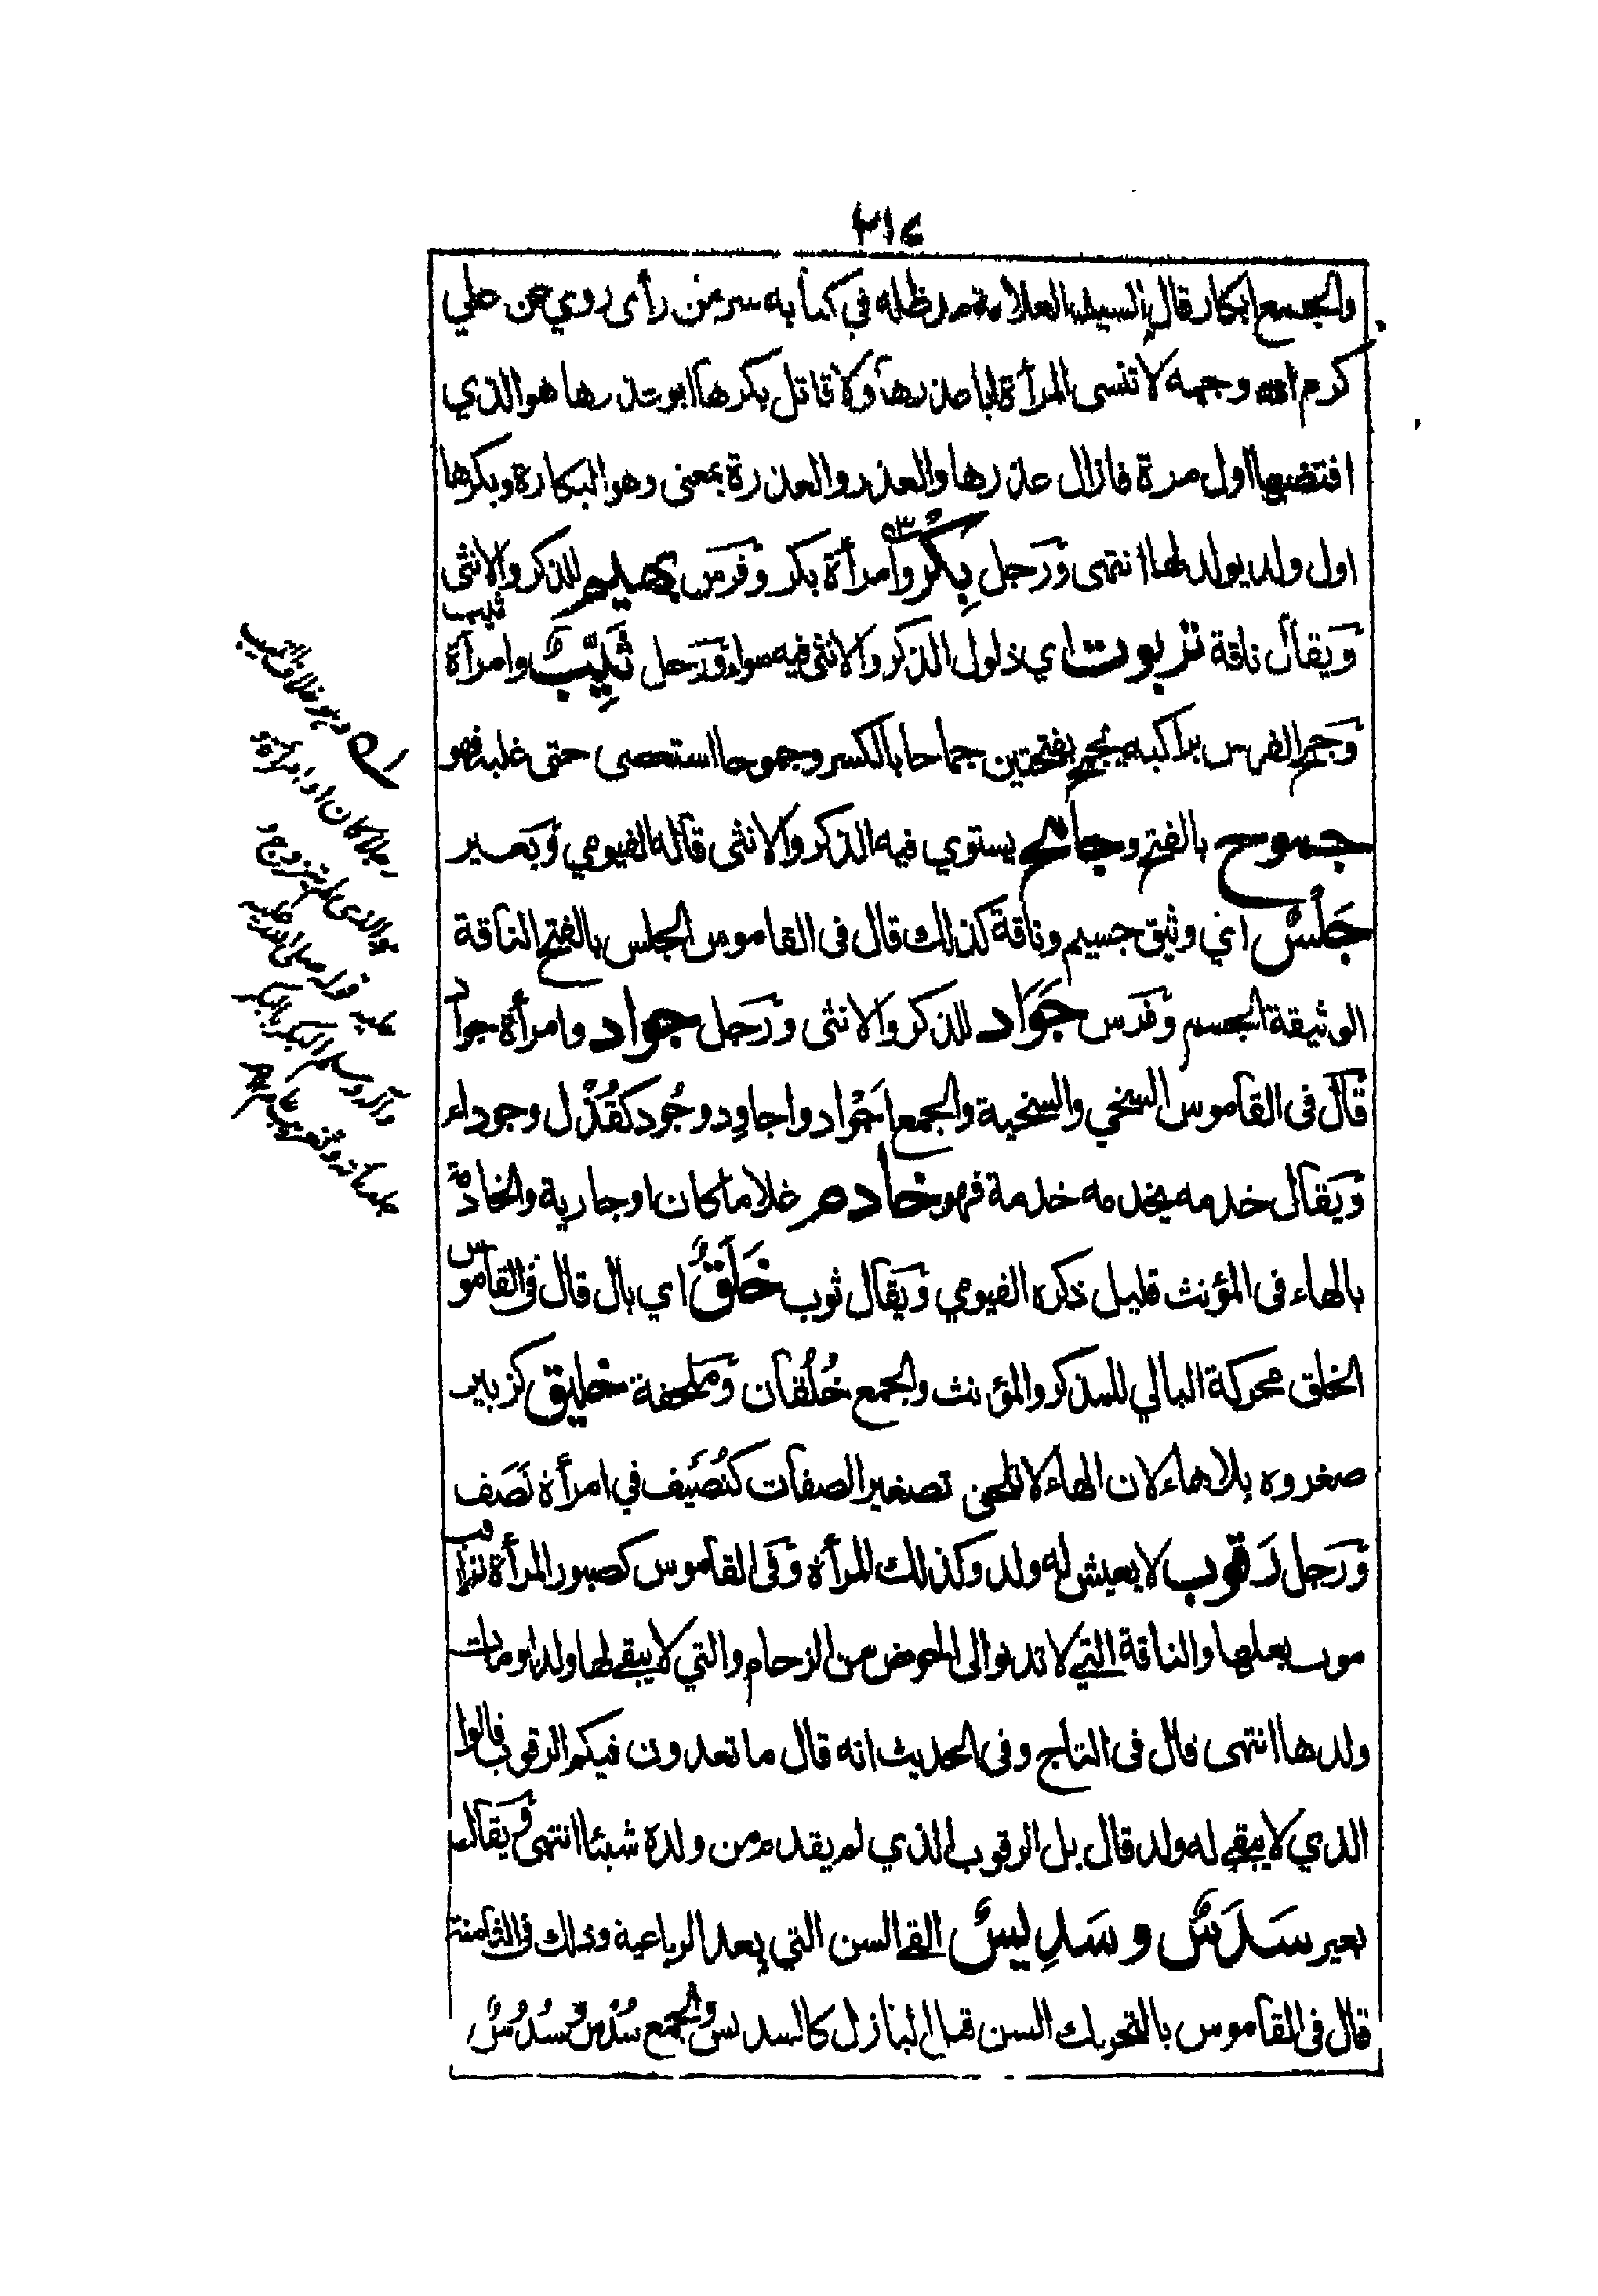 ٢١٤
والجمع ابكار قال السيد العلامة مد ظله في كتابه سر من رأى روي عن علي
كرم الله وجهه لا تنسى المرأة ابا عذرها ولا قاتل بكرها ابو عذرها هو الذي
افتضها اول مرة فازال عذرها والعذر والعذرة بمعنى وهو البكارة وبكرها
اول ولد يولد لها انتهى ورجل بِكْرٌ وامرأة بكر وفرس بهيم للذكر والانثى
ويقال ناقة تربوت اي ذلول الذكر والانثى فيه سواء ورجل ثَيِّبٌ وامرأة ثيب
وجمح الفرس براكبه يجمح بفتحتين جماحا بالكسر وجموحا استعصى حتى غلبه فهو
جموح بالفتح وجامح يستوي فيه الذكر والانثى قاله الفيومي وبعير
جَلْسٌ اي وثيق جسيم وناقة كذلك قال في القاموس الجلس بالفتح الناقة
الوثيقة الجسم وفرس جَوَاد للذكر والانثى ورجل جواد وامرأة جواد
قال في القاموس السخي والسخية والجمع اجواد واجاود وجُود كقُذُل وجوداء
ويقال خدمه يخدمه خدمة فهو خادم غلاما كان او جارية والخادمة
بالهاء في المؤنث قليل ذكره الفيومي ويقال ثوب خَلَقٌ اي بال قال في القاموس
الخلق محركة البالي للمذكر والمؤنث والجمع خُلْقان وملحفة خليق كزبير
صغروه بلا هاء لان الهاء لا تلحق تصغير الصفات كنُصَيف في امرأة نَصَف
ورجل رَقوب لا يعيش له ولد وكذلك المرأة وفي القاموس كصبور المرأة تراقب
موت بعلها والناقة التي لا تدنو الى الحوض من الزحام والتي لا يبقى لها ولد او مات
ولدها انتهى قال في التاج وفي الحديث انه قال ما تعدون فيكم الرقوب قالوا
الذي لا يبقى له ولد قال بل الرقوب الذي لم يقدم من ولده شيئا انتهى ويقال
بعير سَدَسٌ وسَدِيسٌ القى السن التي بعد الرباعية وذلك في الثامنة
قال في القاموس بالتحريك السن قبل البازل كالسديس والجمع سُدْس وسُدُسٌ
رجلا كان او امرأة
صلى الله عليه
وآله وسلم البكر بالبكر
جلد مائة وتغريب عام